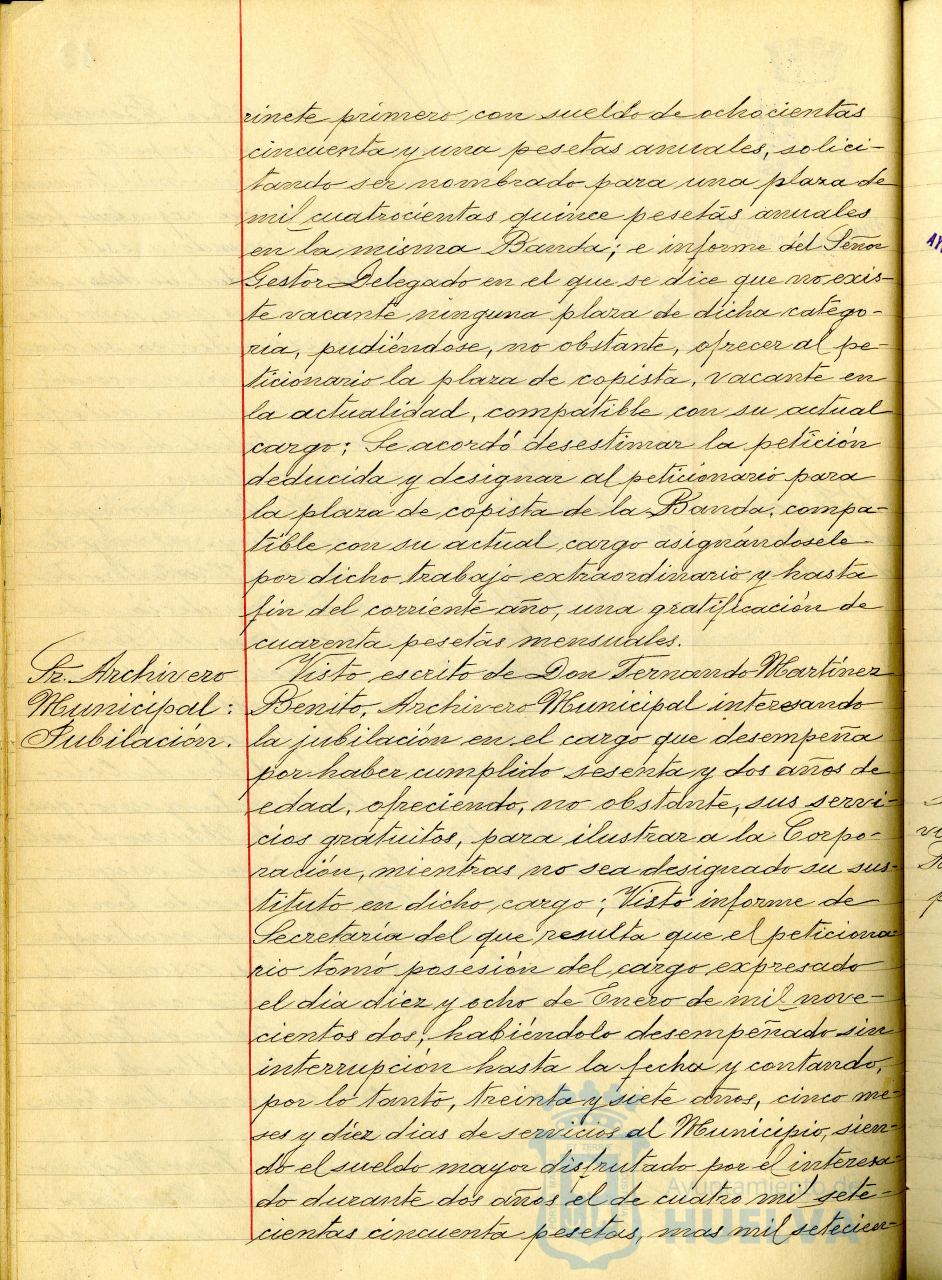 rinete primero con sueldo de ochocientas
cincuenta y una pesetas anuales, solici-
tando ser nombrado para una plaza de
mil cuatrocientas quince pesetas anuales
en la misma Banda; e informe del Señor
Gestor Delegado en el que se dice que no exis-
te vacante ninguna plaza de dicha catego-
ria, pudiéndose, no obstante, ofrecer al pe-
ticionario la plaza de copista, vacante en
la actualidad, compatible con su actual
cargo; Se acordó desestimar la petición
deducida y designar al peticionario para
la plaza de copista de la Banda, compa-
tible con su actual cargo asignándosele
por dicho trabajo extraordinario y hasta
fin del corriente año, una gratificación de
cuarenta pesetas mensuales.
Sr. Archivero
Municipal:
Jubilación.
Visto escrito de Don Fernando Martínez
Benito, Archivero Municipal interesando
la jubilación en el cargo que desempeña
por haber cumplido sesenta y dos años de
edad, ofreciendo, no obstante, sus servi-
cios gratuitos, para ilustrar a la Corpo-
ración, mientras no sea designado su sus-
tituto en dicho cargo; Visto informe de
Secretaría del que resulta que el peticiona-
rio tomó posesión del cargo expresado
el dia diez y ocho de Enero de mil nove-
cientos dos, habiéndolo desempeñado sin
interrupción hasta la fecha y contando,
por lo tanto, treinta y siete años, cinco me-
ses y diez dias de servicios al Municipio, sien-
do el sueldo mayor disfrutado por el interesa-
do durante dos años el de cuatro mil sete-
cientas cincuenta pesetas, mas mil setecien-
Ayuntamiento de
HUELVA